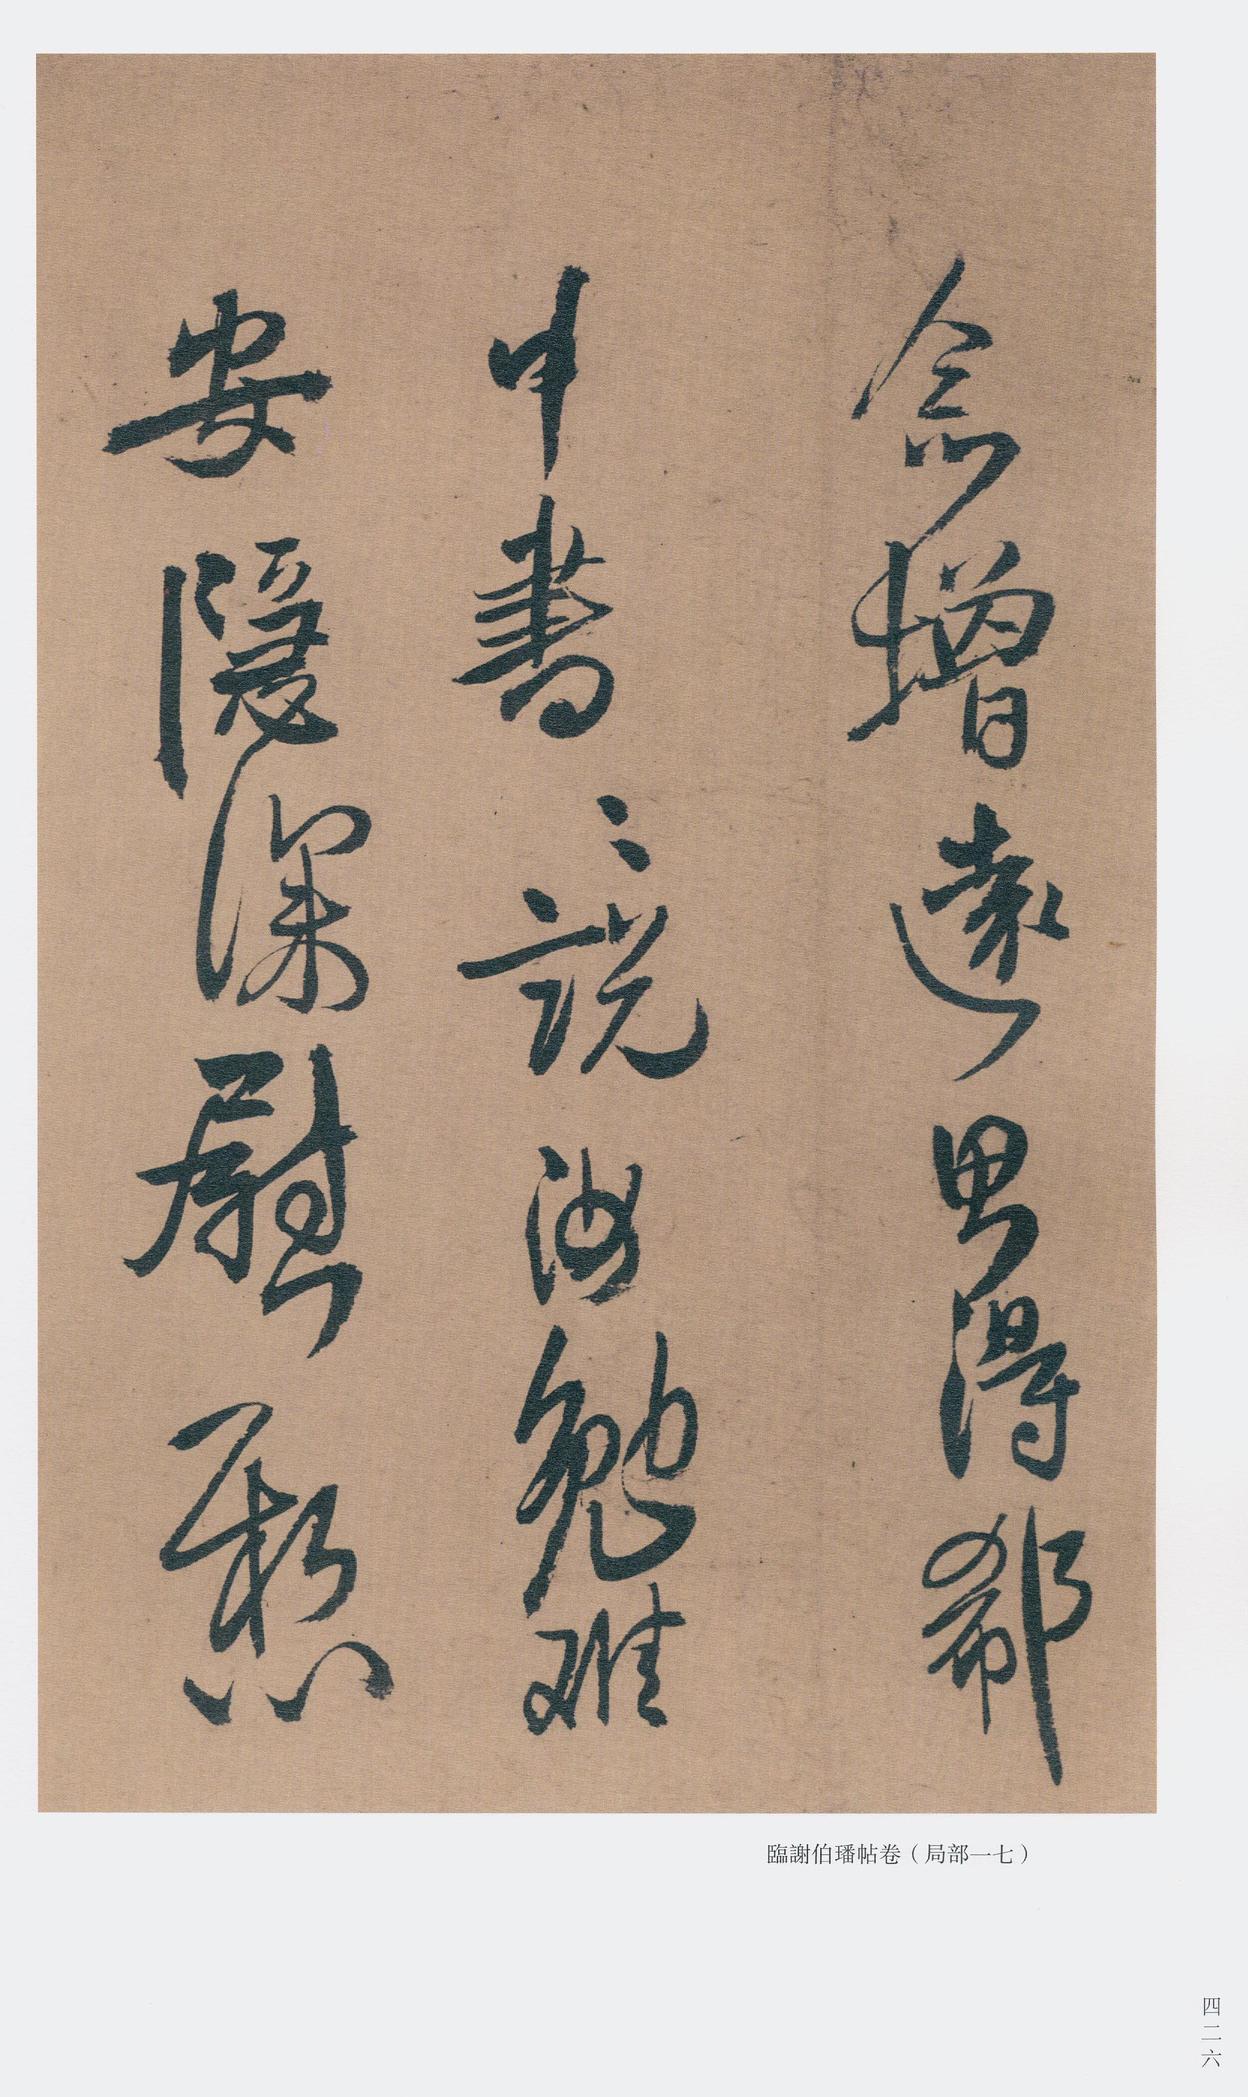 念增遠思得郗
中書書說汝勉難
安隱深慰懸
臨謝伯璠帖卷（局部一七）
四二六